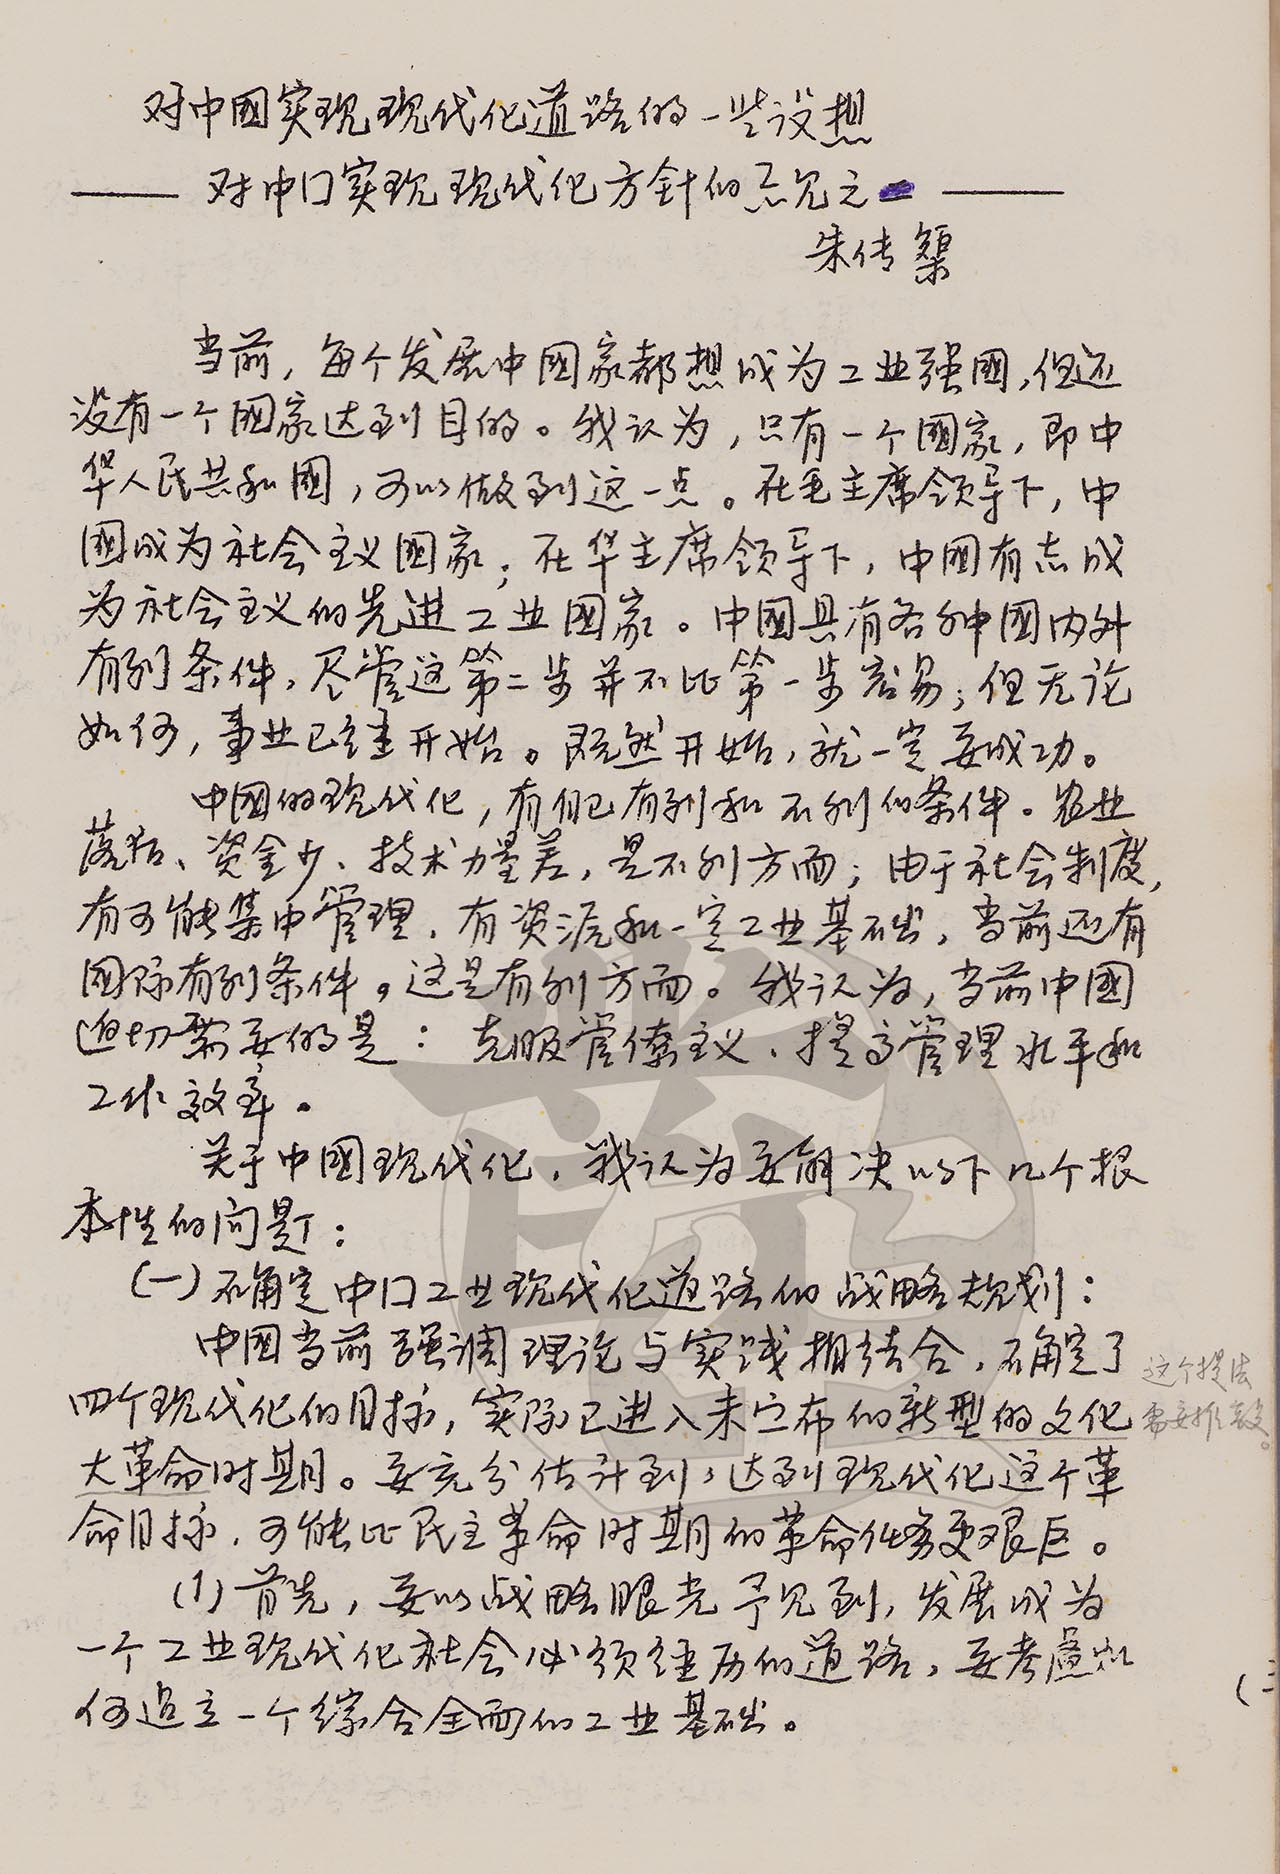 对中國实现现代化道路的一些设想
—— 对中囗实现现代化方針的意见之一 ——
朱传榘
当前，每个发展中國家都想成为工业强國，但还
没有一个國家达到目的。我认为，只有一个國家，即中
华人民共和國，可以做到这一点。在毛主席领导下，中
國成为社会主义國家；在华主席领导下，中國有志成
为社会主义的先进工业國家。中國具有各种國内外
有利条件，尽管这第二步并不比第一步容易；但无论
如何，事业已经开始。既然开始，就一定要成功。
中國的现代化，有自己有利和不利的条件。农业
落后、资金少、技术力量差，是不利方面；由于社会制度，
有可能集中管理，有资源和一定工业基础，当前还有
國际有利条件。这是有利方面。我认为，当前中國
迫切需要的是：克服官僚主义、提高管理水平和
工作效率。
关于中國现代化，我认为要解决以下几个根
本性的问题：
(一)确定中囗工业现代化道路的战略规划：
中國当前强调理论与实践相结合，确定了
四个现代化的目标，实际已进入未宣布的新型的文化
大革命时期。要充分估计到，达到现代化这个革
命目标，可能比民主革命时期的革命任务更艰巨。
(1)首先，要以战略眼光予见到，发展成为
一个工业现代化社会必须经历的道路，要考虑如
何建立一个综合全面的工业基础。
这个提法
需要推敲。